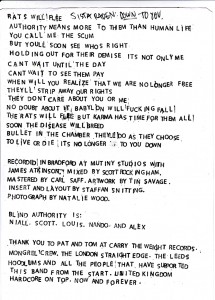 RATS WILL FLEE
AUTHORITY MEANS MORE TO THEM THAN HUMAN LIFE
YOU CALL ME THE SCUM
BUT YOU'LL SOON SEE WHO'S RIGHT
HOLDING OUT FOR THEIR DEMISE IT'S NOT ONLY ME
CANT WAIT UNTIL THE DAY
CANT WAIT TO SEE THEM PAY
WHEN WILL YOU REALIZE THAT WE ARE NO LONGER FREE
THEY'LL STRIP AWAY OUR RIGHTS
THEY DONT CARE ABOUT YOU OR ME
NO DOUBT ABOUT IT, BABYLON WILL FUCKING FALL!
THE RATS WILL FLEE BUT KARMA HAS TIME FOR THEM ALL!
SOON THE DISEASE WILL BREED
BULLET IN THE CHAMBER THEY'LL DO AS THEY CHOOSE
TO LIVE OR DIE, ITS NO LONGER UP TO YOU DOWN
RECORDED IN BRADFORD AT MUTINY STUDIOS WITH
JAMES ATKINSON. MIXED BY SCOTT ROCKINGHAM,
MASTERED BY CARL SAFF. ARTWORK BY TIN SAVAGE.
INSERT AND LAYOUT BY STAFFAN SNITTING.
PHOTOGRAPH BY NATALIE WOOD.
BLIND AUTHORITY IS:
NIALL. SCOTT. LOUIS. NANDO. AND ALEX
THANK YOU TO PAT AND TOM AT CARRY THE WEIGHT RECORDS.
MONGREL CREW, THE LONDON STRAIGHT EDGE. THE LEEDS
HOODLUMS AND ALL THE PEOPLE THAT HAVE SUPPORTED
THIS BAND FROM THE START. UNITED KINGDOM
HARDCORE ON TOP. NOW AND FOREVER.